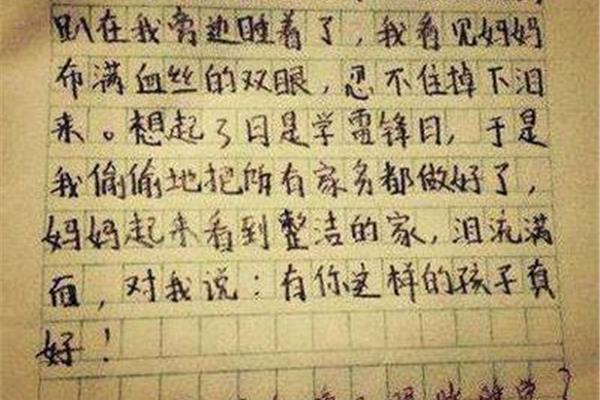 趴在我旁边睡着了,我看见妈妈
布满血丝的双眼,忍不住掉下泪
来。想起了日是学雷锋日,于是
我偷偷地把所有家务都做好了,
妈妈起来看到整洁的家,泪流满
面,对我说:有你这样的孩子真
好!